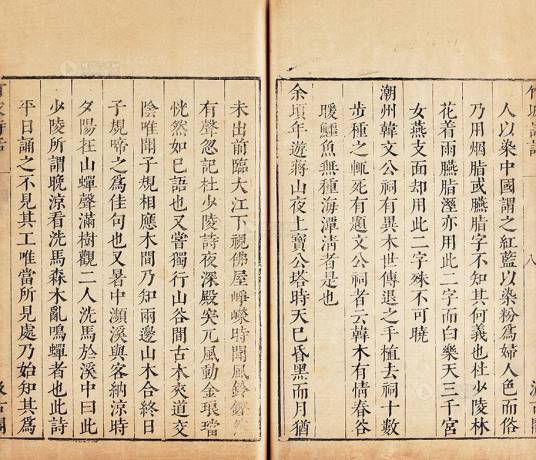 人以染中國謂之紅藍以染粉爲婦人色而俗
乃用烟脂或臙脂字不知其何義也杜少陵林
花着雨臙脂溼亦用此二字而白樂天三千宮
女燕支面却用此二字殊不可曉
潮州韓文公祠有異木世傳退之手植去祠十數
步種之輒死有題文公祠者云韓木有情春谷
暖鱷魚無種海潭清者是也
余頃年遊蔣山夜上寶公塔時天已昏黑而月猶
未出前臨大江下視佛屋崢嶸時聞風鈴鏗然
有聲忽記杜少陵詩夜深殿突元風動金琅璫
恍然如已語也又嘗獨行山谷間古木夾道交
陰唯聞子規相應木間乃知兩邊山木合終日
子規啼之爲佳句也又暑中瀕溪與客納涼時
夕陽在山蟬聲滿樹觀二人洗馬於溪中曰此
少陵所謂晚涼看洗馬森木亂鳴蟬者也此詩
平日誦之不見其工唯當所見處乃始知其爲